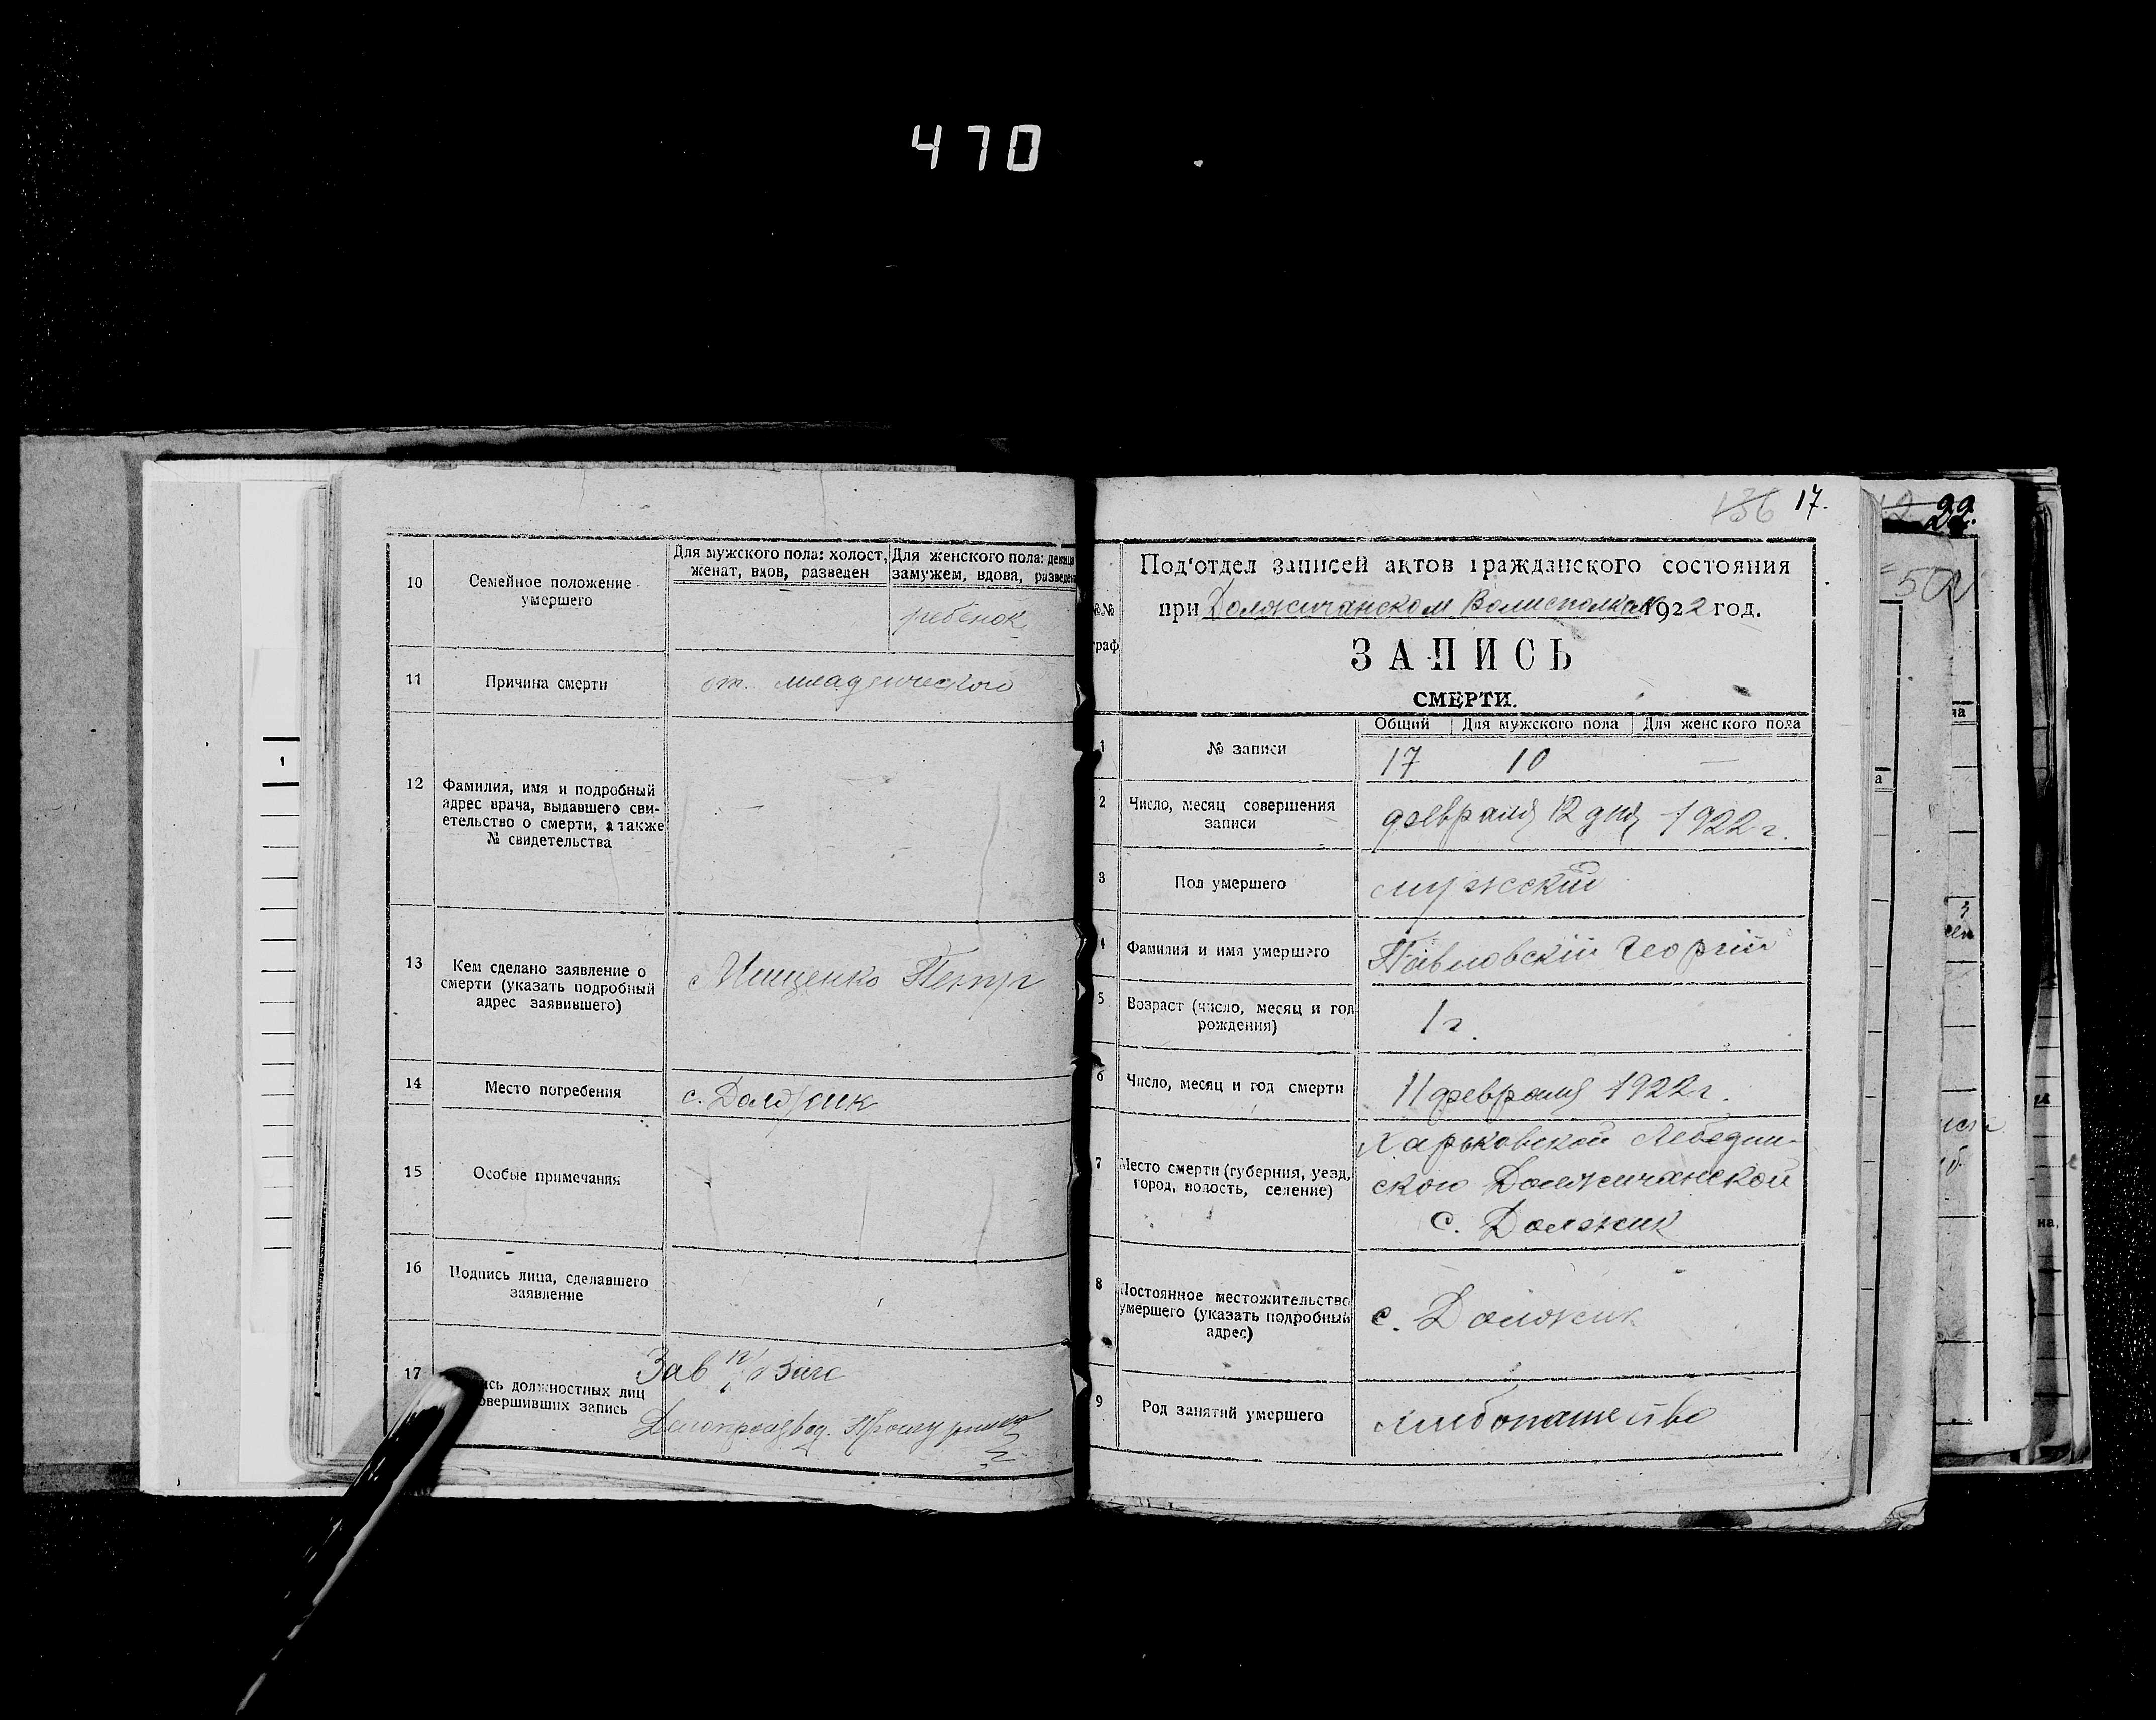 470
10
Семейное положение
умершего
Для мужского пола: холост,
женат, вдов, разведен
Для женского пола: девица
замужем, вдова, разведена
ребенок
11
Причина смерти
от младенческого
12
Фамилия, имя и подробный
адрес врача, выдавшего сви-
етельство о смерти, а также
№ свидетельства
13
Кем сделано заявление о
смерти (указать подробный
адрес заявившего)
Мищенко Петр
14
Место погребения
с. Должик
15
Особые примечания
16
Подпись лица, сделавшего
заявление
17
ись должностных лиц
овершивших запись
Зав п/о Загс
Делопроизвод.
1
136 17.
Под'отдел записей актов гражданского состояния
при Должичанском Волисполком 1922 год.
№№
граф
ЗАПИСЬ
СМЕРТИ.
Общий Для мужского пола Для женского пола
1
№ записи
17 10 —
2
Число, месяц совершения
записи
февраля 12 дня 1922 г.
3
Пол умершего
мужский
4
Фамилия и имя умершего
Павловскій Георгій
5
Возраст (число, месяц и год
рождения)
1 г.
6
Число, месяц и год смерти
11 февраля 1922 г.
7
Место смерти (губерния, уезд,
город, волость, селение)
Харьковской Лебедин-
ского Должичанской
с. Должик
8
Постоянное местожительство
умершего (указать подробный
адрес)
с. Должик
9
Род занятий умершего
хлибопашество
22.
50